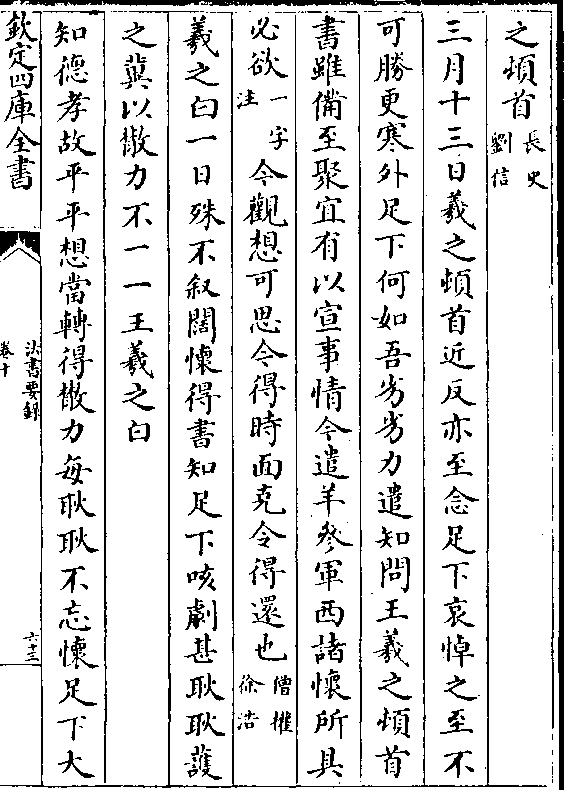 之頓首長史劉信
三月十三日羲之頓首近反亦至念足下哀悼之至不
可勝更寒外足下何如吾劣劣力遣知問王羲之頓首
書雖備至聚宜有以宣事情今遣羊參軍西諸懷所具
必欲一字注今觀想可思令得時面克令得還也僧權徐浩
羲之白一日殊不叙闊懷得書知足下咳劇甚耿耿護
之冀以散力不一一王羲之白
知德孝故平平想當轉得散力每耿耿不忘懷足下大
欽定四庫全書
法書要錄
卷十
六十三